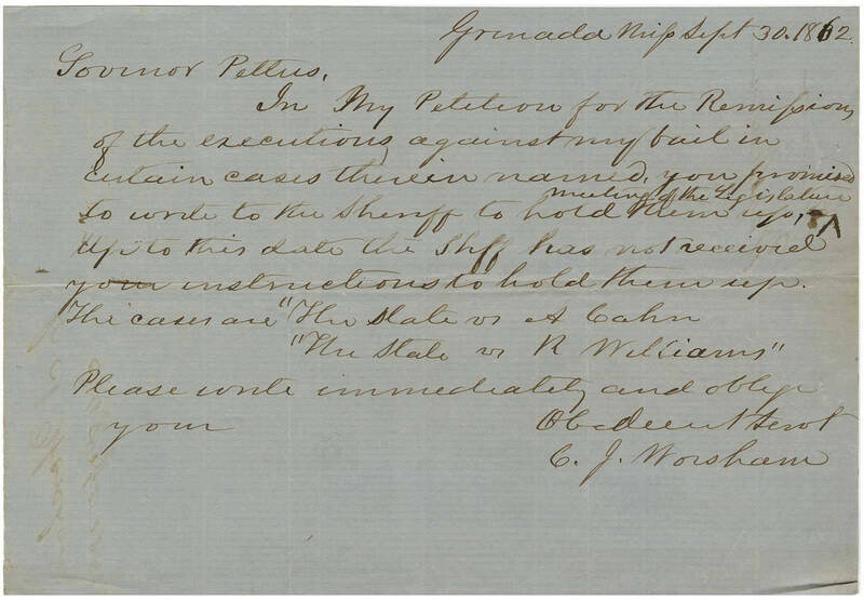 Grenada Miss Sept 30. 1862.
Govinor Pettus.
In My Petition for the Remission
of the executions against my bail in
certain cases therein named, you promised
meeting of the Legislature
to write to the Sheriff to hold them up,
Up to this date the Shff has not received
your instructions to hold them up.
The cases are "The State vs A Cahn
"The State vs R Williams"
Please write immediately and oblige
your Obedeent Servt
C. J. Worsham